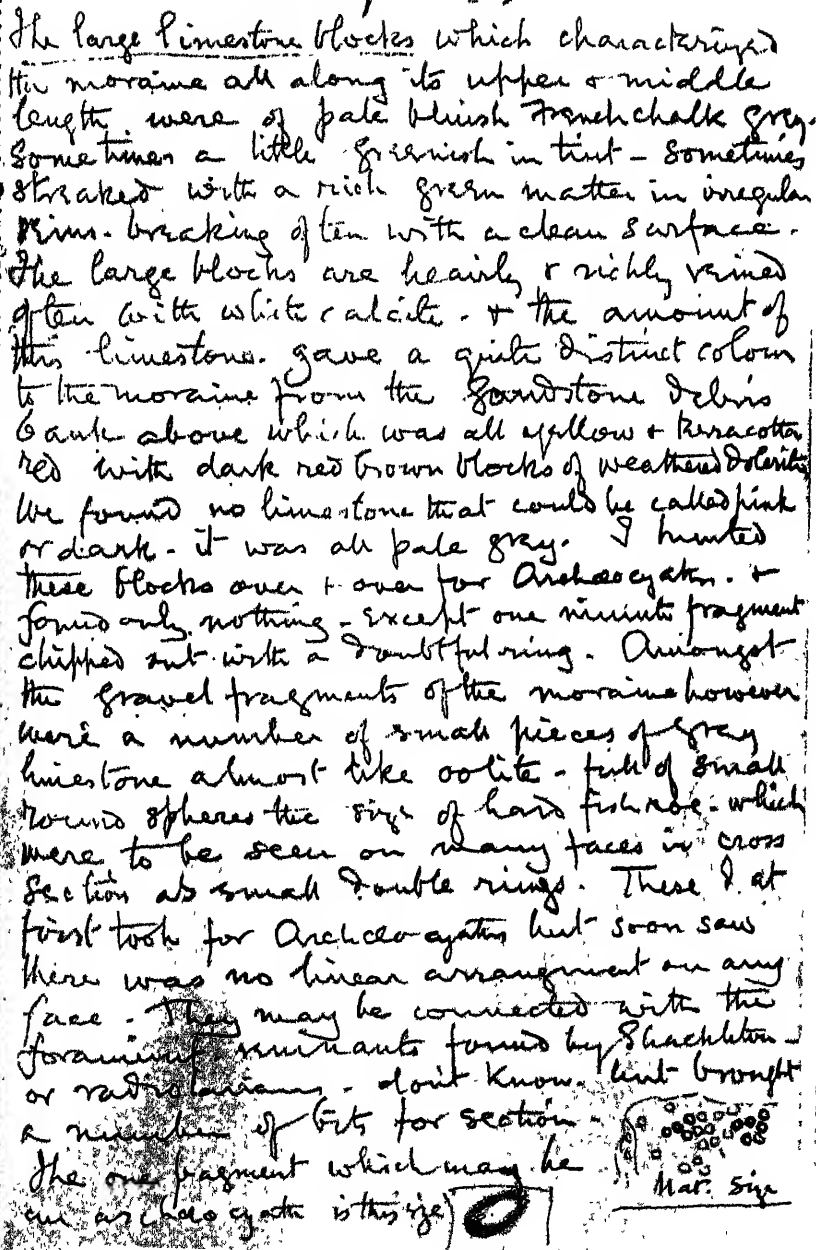 The large limestone blocks which characterized
the moraine all along its upper & middle
length were of pale bluish French chalk grey.
Sometimes a little greenish in tint - sometimes
streaked with a rich green matter in irregular
veins. breaking often with a clean surface.
The large blocks are heavily & richly veined
often with white calcite. & the amount of
this limestone. gave a quite distinct colour
to the moraine from the Sandstone debris
bank above which was all yellow & terracotta
red with dark red brown blocks of weathered dolerite
We found no limestone that could be called pink
or dark - it was all pale gray. I hunted
these blocks over & over for Archaeocyaths. &
found only nothing - except one minute fragment
chipped out with a doubtful ring. Amongst
the gravel fragments of the moraine however
were a number of small pieces of gray
limestone almost like oolite - full of small
round spheres the size of hard fish roe - which
were to be seen on many faces in cross
section as small double rings. These I at
first took for Archaeocyaths but soon saw
there was no linear arrangment on any
face. They may be connected with the
foraminif. remnants found by Shackleton -
or radiolarians - don't know. but brought
a number of bits for section.
The one fragment which may be
an archaeocyath is this size
Nat. Size